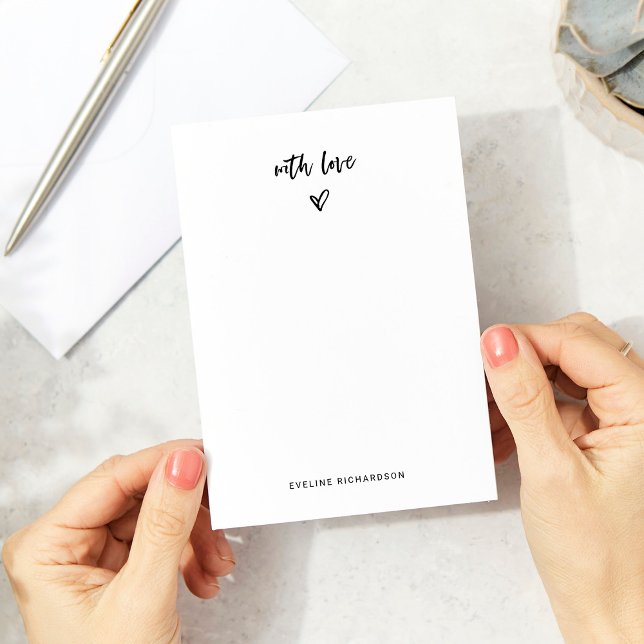 with love
EVELINE RICHARDSON